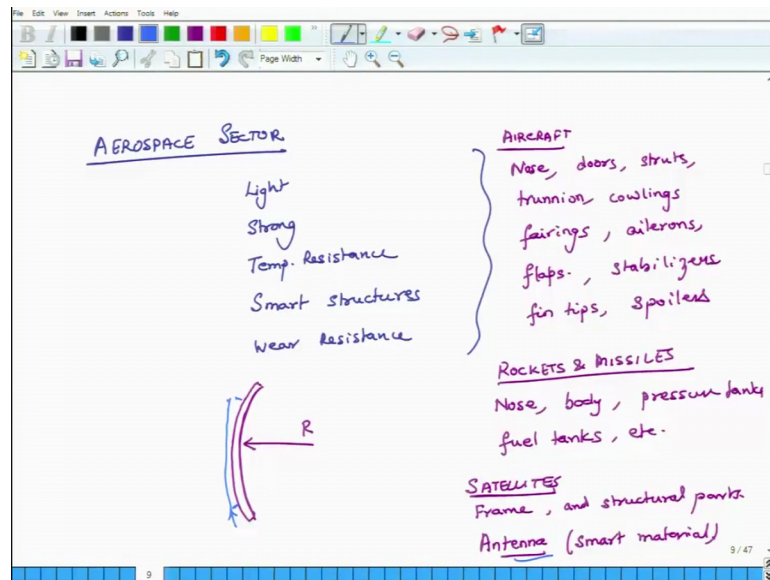 File Edit View Insert Actions Tools Help
B I
Page Width
AEROSPACE SECTOR
Light
Strong
Temp. Resistance
Smart structures
Wear Resistance
R
AIRCRAFT
Nose, doors, struts,
trunnion, cowlings
fairings, ailerons,
flaps., stabilizers
fin tips, spoilers
ROCKETS & MISSILES
Nose, body, pressure tanks
fuel tanks, etc.
SATELLITES
Frame, and structural parts.
Antenna (smart material)
9/47
9